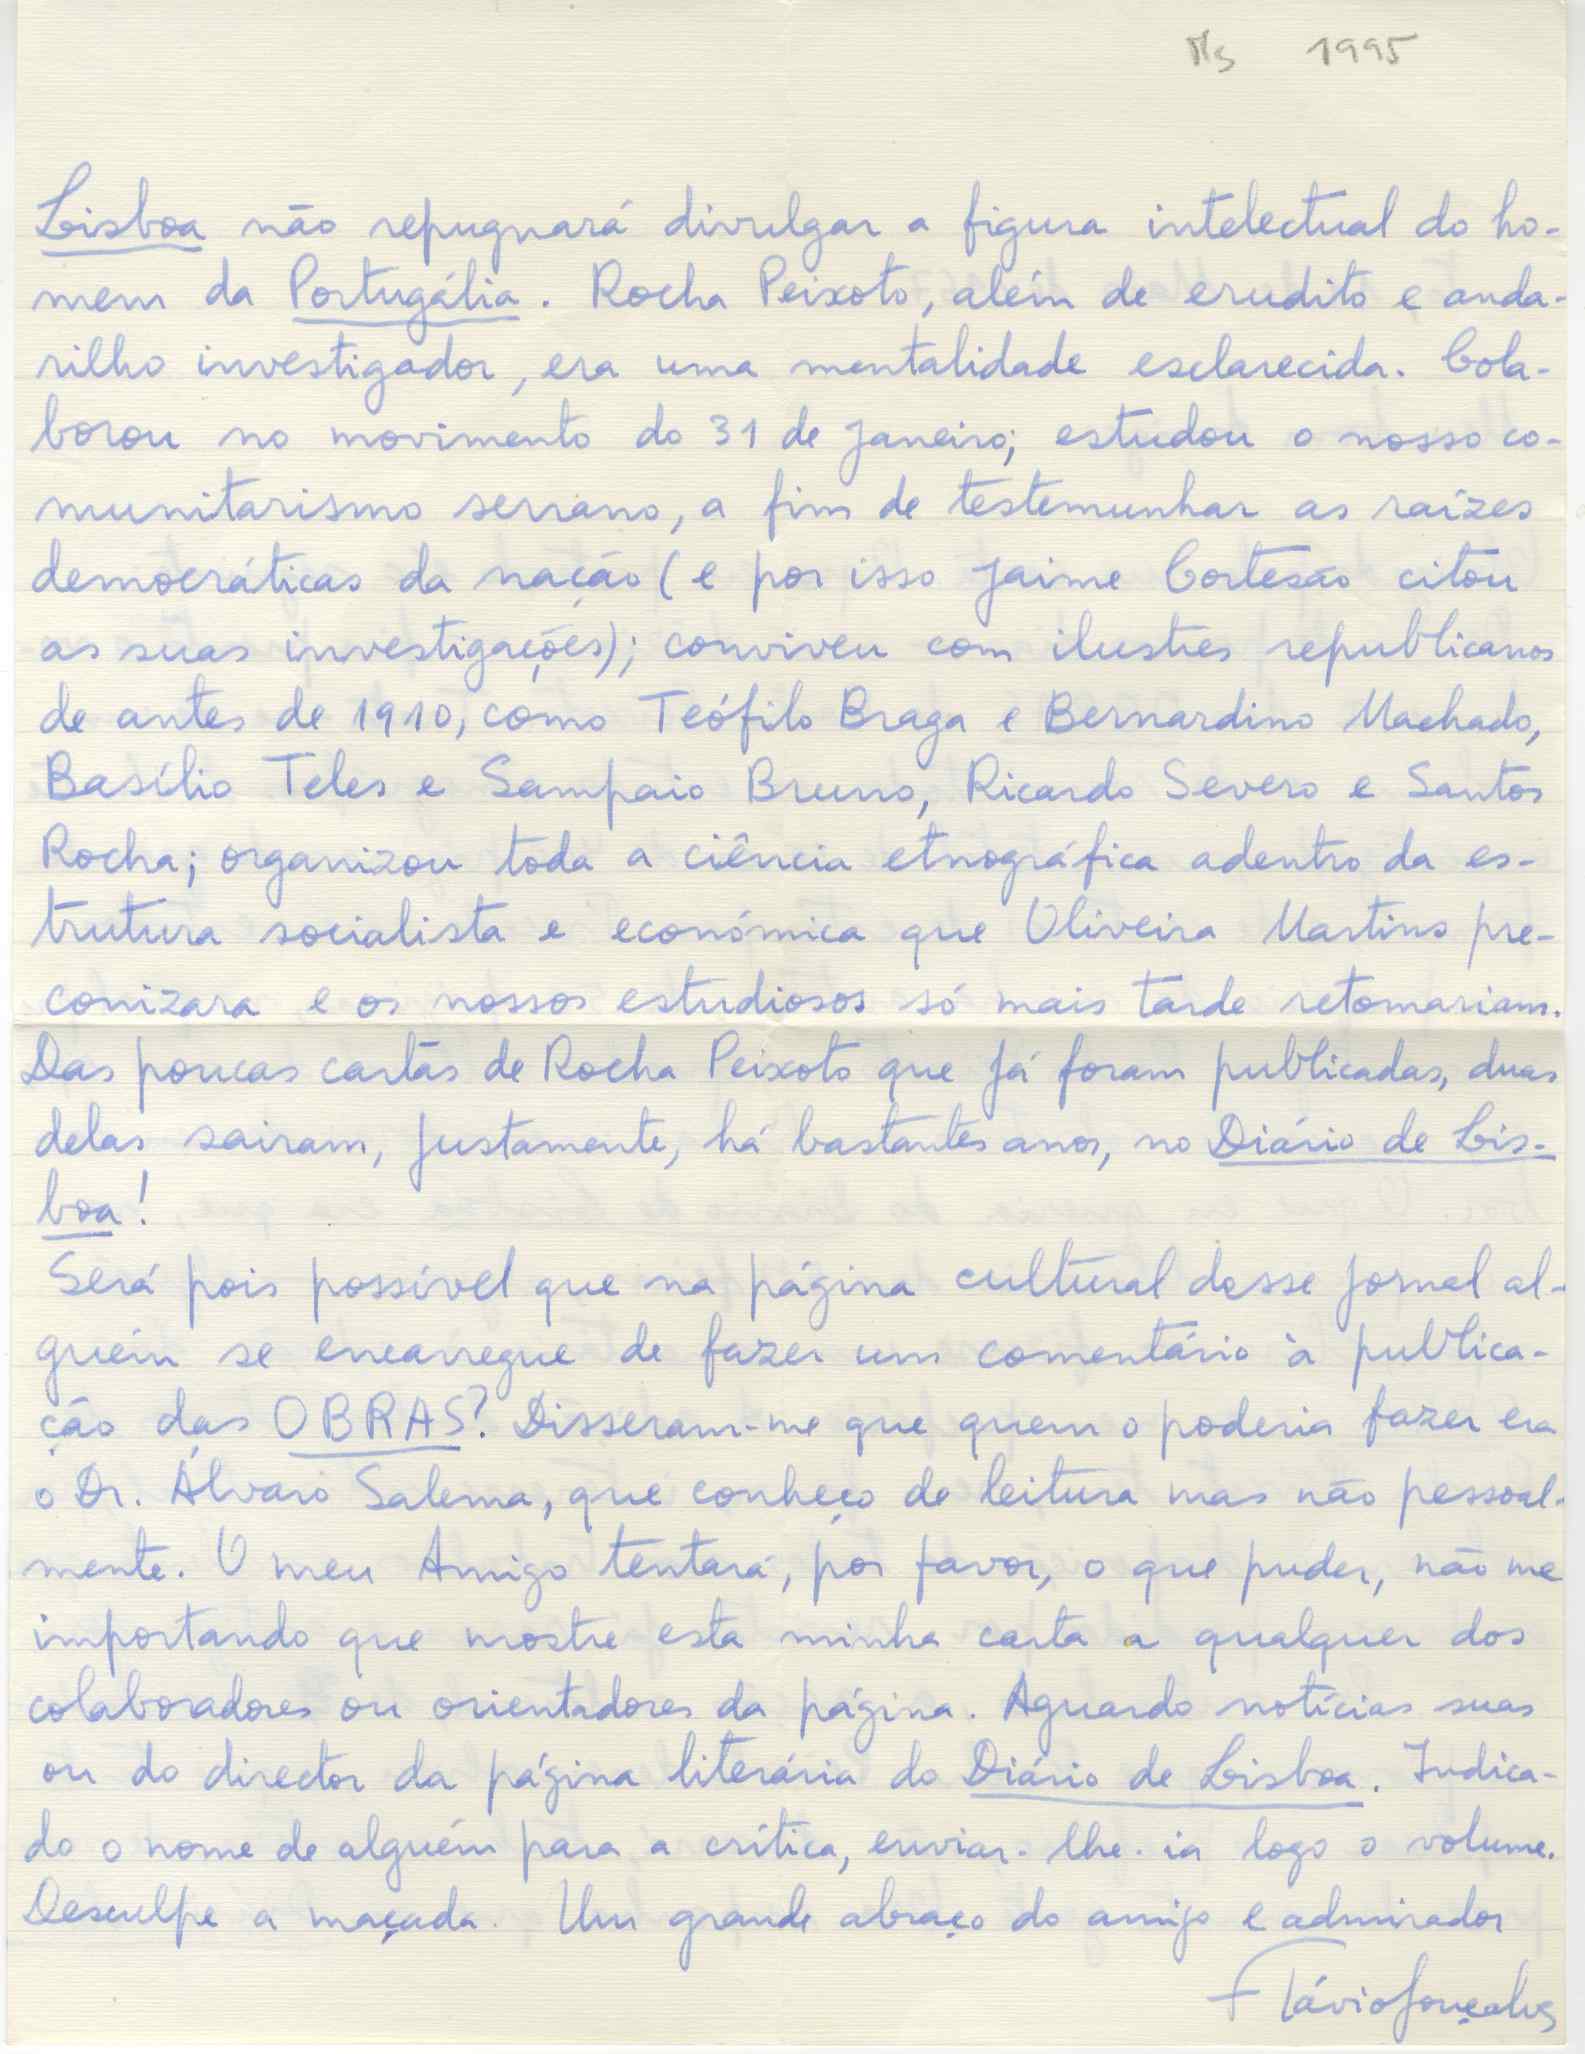 Ms 1995
Lisboa não repugnará divulgar a figura intelectual do ho-
mem da Portugália. Rocha Peixoto, além de erudito e anda-
rilho investigador, era uma mentalidade esclarecida. Cola-
borou no movimento do 31 de Janeiro; estudou o nosso co-
munitarismo serrano, a fim de testemunhar as raízes
democráticas da nação (e por isso Jaime Cortesão citou
as suas investigações); conviveu com ilustres republicanos
de antes de 1910, como Teófilo Braga e Bernardino Machado,
Basílio Teles e Sampaio Bruno, Ricardo Severo e Santos
Rocha; organizou toda a ciência etnográfica adentro da es-
trutura socialista e económica que Oliveira Martins pre-
conizara e os nossos estudiosos só mais tarde retomariam.
Das poucas cartas de Rocha Peixoto que já foram publicadas, duas
delas sairam, justamente, há bastantes anos, no Diário de Lis-
boa!
Será pois possível que na página cultural desse jornal al-
guém se encarregue de fazer um comentário à publica-
ção das OBRAS? Disseram-me que quem o poderia fazer era
o Dr. Álvaro Salema, que conheço de leitura mas não pessoal-
mente. O meu Amigo tentará, por favor, o que puder, não me
importando que mostre esta minha carta a qualquer dos
colaboradores ou orientadores da página. Aguardo notícias suas
ou do director da página literária do Diário de Lisboa. Indica-
do o nome de alguém para a crítica, enviar-lhe-ia logo o volume.
Desculpe a maçada. Um grande abraço do amigo e admirador
Flávio Gonçalves